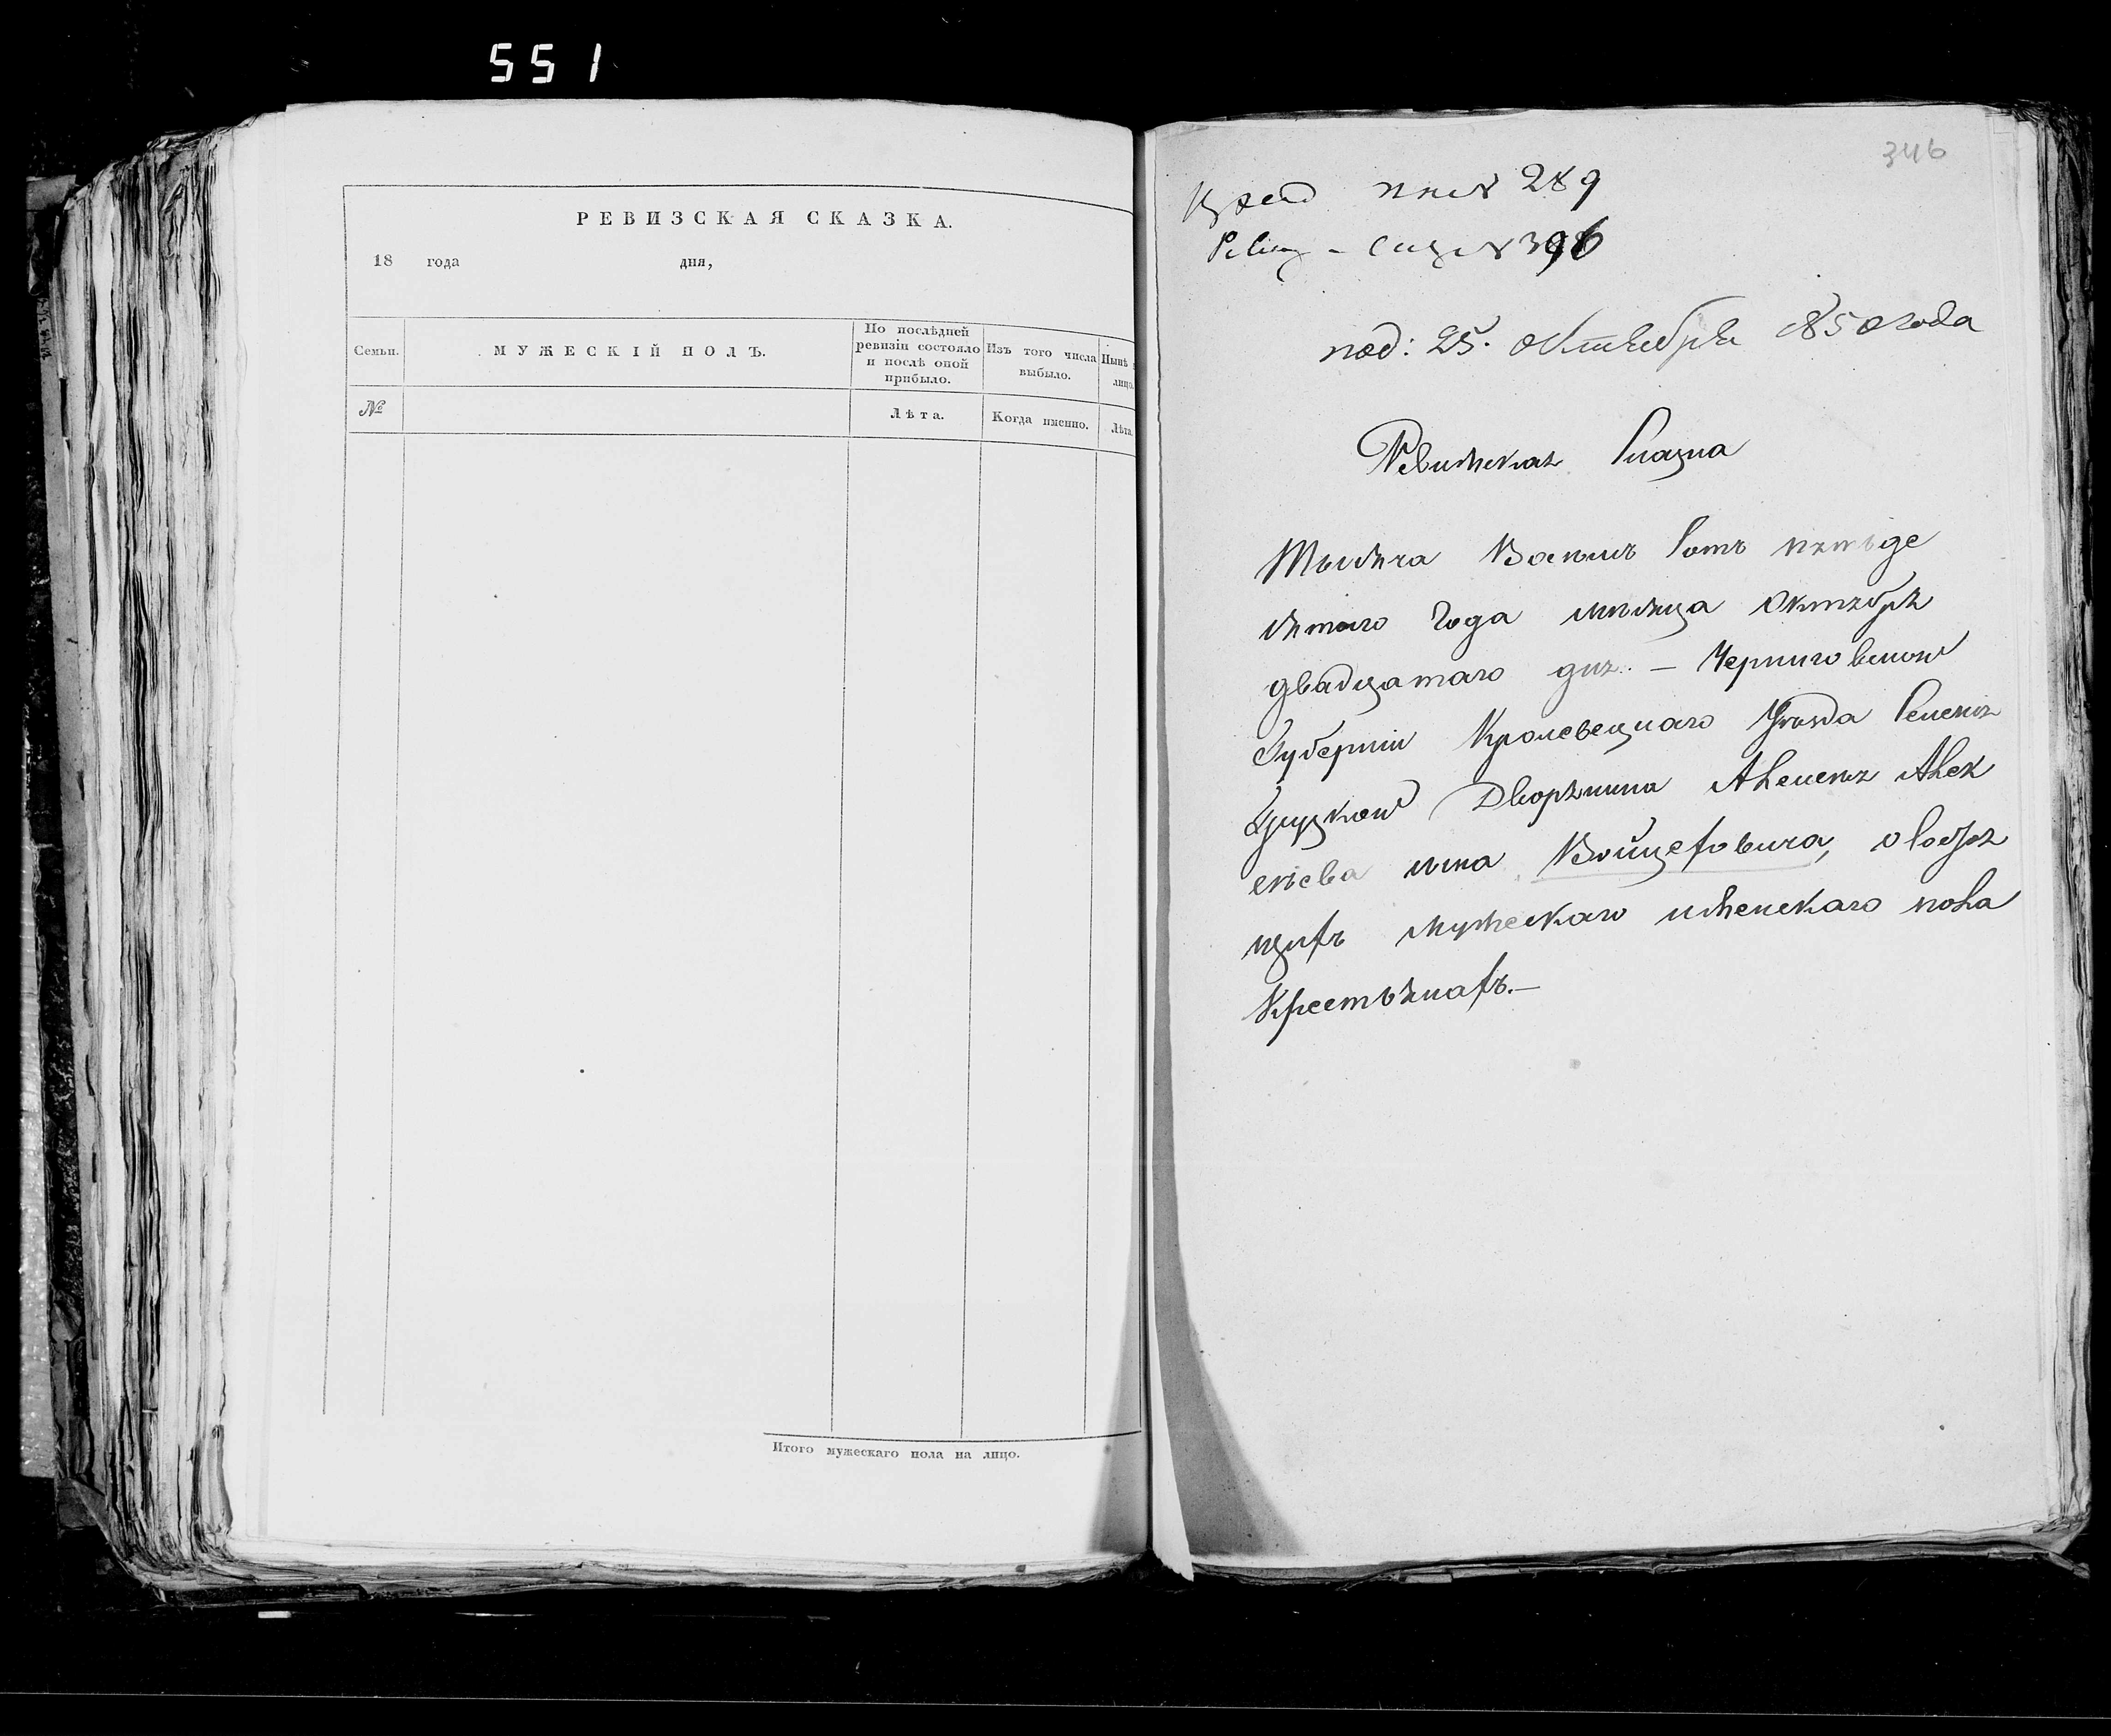 551
РЕВИЗСКАЯ СКАЗКА.
18 года дня,
Семьи.
МУЖЕСКІЙ ПОЛЪ.
По послѣдней
ревизіи состояло
и послѣ оной
прибыло.
Изъ того числа
выбыло.
Нынѣ
лицо.
№
Лѣта.
Когда именно.
Лѣта.
Итого мужескаго пола на лицо.
346
№ 289
№ 396
под: 25. Октября 1850 года
Ревижская Сказка
Тысяча Восемъ Сотъ пятьде
сятого Года месяца Октября
двадцатаго дня. — Черниговской
Губерніи Кролевецкаго Уѣзда
Дворянина Алексея Алек
ѣева сына Войцеховича, о
щихъ мужескаго и женскаго пола
Крестьянахъ.—